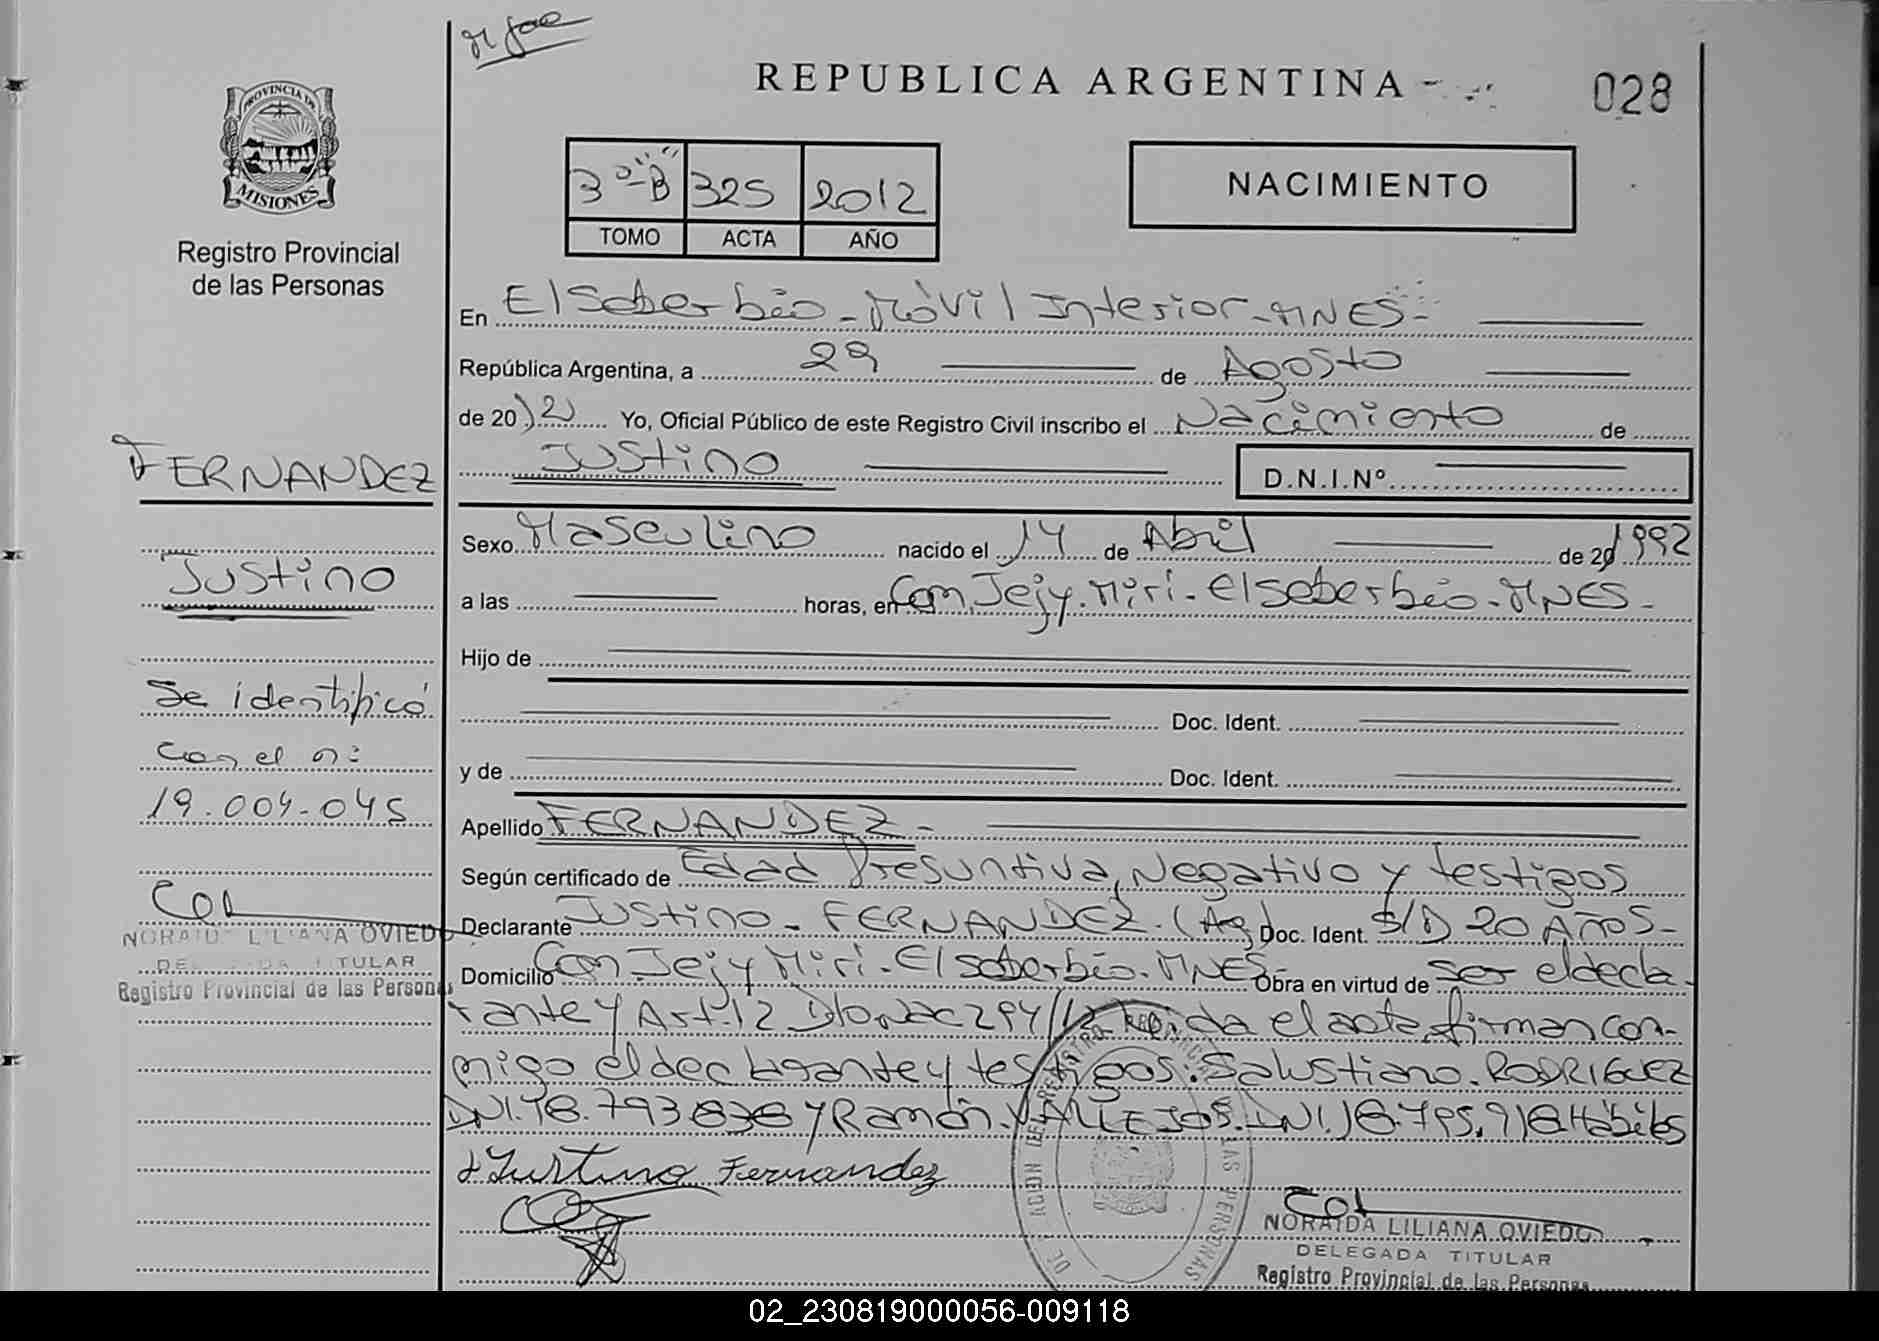 REPUBLICA ARGENTINA
028
PROVINCIA DE
MISIONES
Registro Provincial
de las Personas
3º-B 325 2012
TOMO ACTA AÑO
NACIMIENTO
En El Soberbio - Móvil Interior - MNES -
República Argentina, a 29 de Agosto
de 2012 Yo, Oficial Público de este Registro Civil inscribo el Nacimiento de
Justino D.N.I.Nº
FERNANDEZ
Justino
Se identificó
con el nº
19.004.045
NORAIDA LILIANA OVIEDO
DELEGADA TITULAR
Registro Provincial de las Personas
Sexo Masculino nacido el 14 de Abril de 20 1992
a las horas, en Com. Jejy. Miri. El Soberbio. MNES.
Hijo de
Doc. Ident.
y de Doc. Ident.
Apellido FERNANDEZ -
Según certificado de Edad Presuntiva, Negativo y testigos
Declarante Justino - FERNANDEZ. Doc. Ident. S/D 20 AÑOS -
Domicilio Com Jejy Miri. El Soberbio. MNES Obra en virtud de Ser el decla-
rante y Art. 12 294/12 el acta firman con-
migo el declarante y testigos: Salustiano. RODRIGUEZ
DNI. 18.793.838 y Ramón. VALLEJOS. DNI. 18.795.918 Hábiles
Justino Fernandez
NORAIDA LILIANA OVIEDO
DELEGADA TITULAR
Registro Provincial de las Personas
02_230819000056-009118